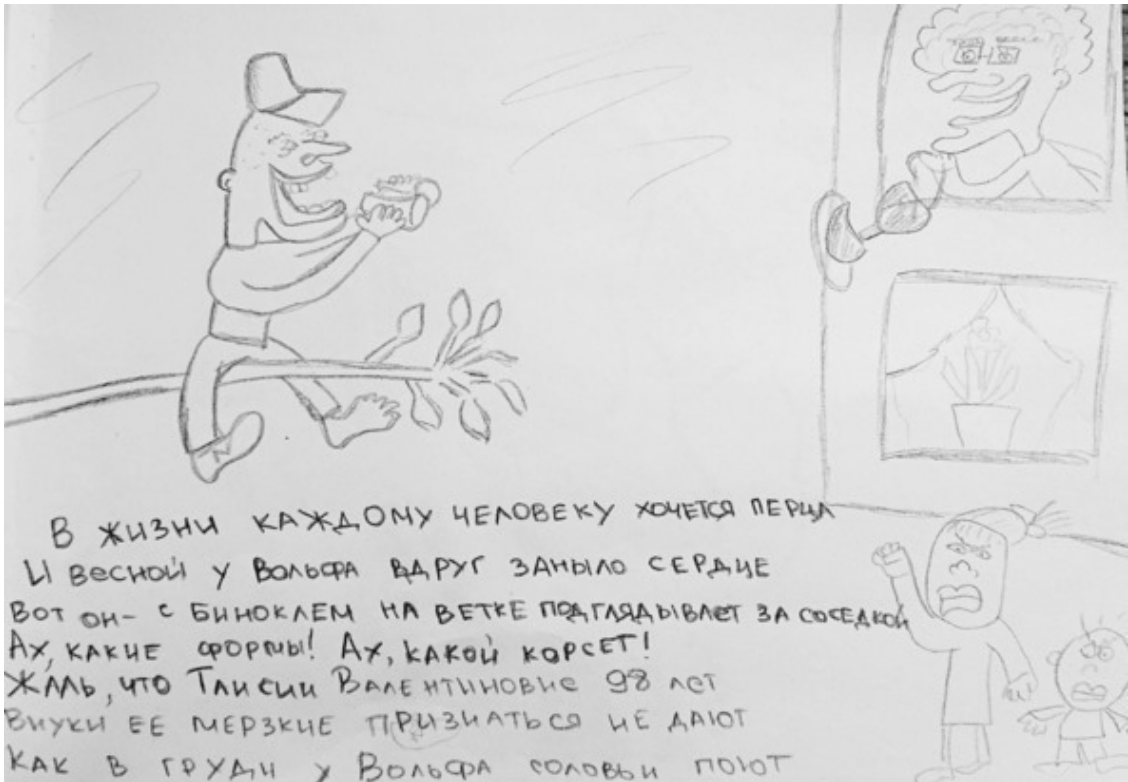 В ЖИЗНИ КАЖДОМУ ЧЕЛОВЕКУ ХОЧЕТСЯ ПЕРЦА
И ВЕСНОЙ У ВОЛЬФА ВДРУГ ЗАНЫЛО СЕРДЦЕ
ВОТ ОН- С БИНОКЛЕМ НА ВЕТКЕ ПОДГЛЯДЫВАЕТ ЗА СОСЕДКОЙ
АХ, КАКИЕ ФОРМЫ! АХ, КАКОЙ КОРСЕТ!
ЖАЛЬ, ЧТО ТАИСИИ ВАЛЕНТИНОВНЕ 98 ЛЕТ
ВНУКИ ЕЕ МЕРЗКИЕ ПРИЗНАТЬСЯ НЕ ДАЮТ
КАК В ГРУДИ У ВОЛЬФА СОЛОВЬИ ПОЮТ